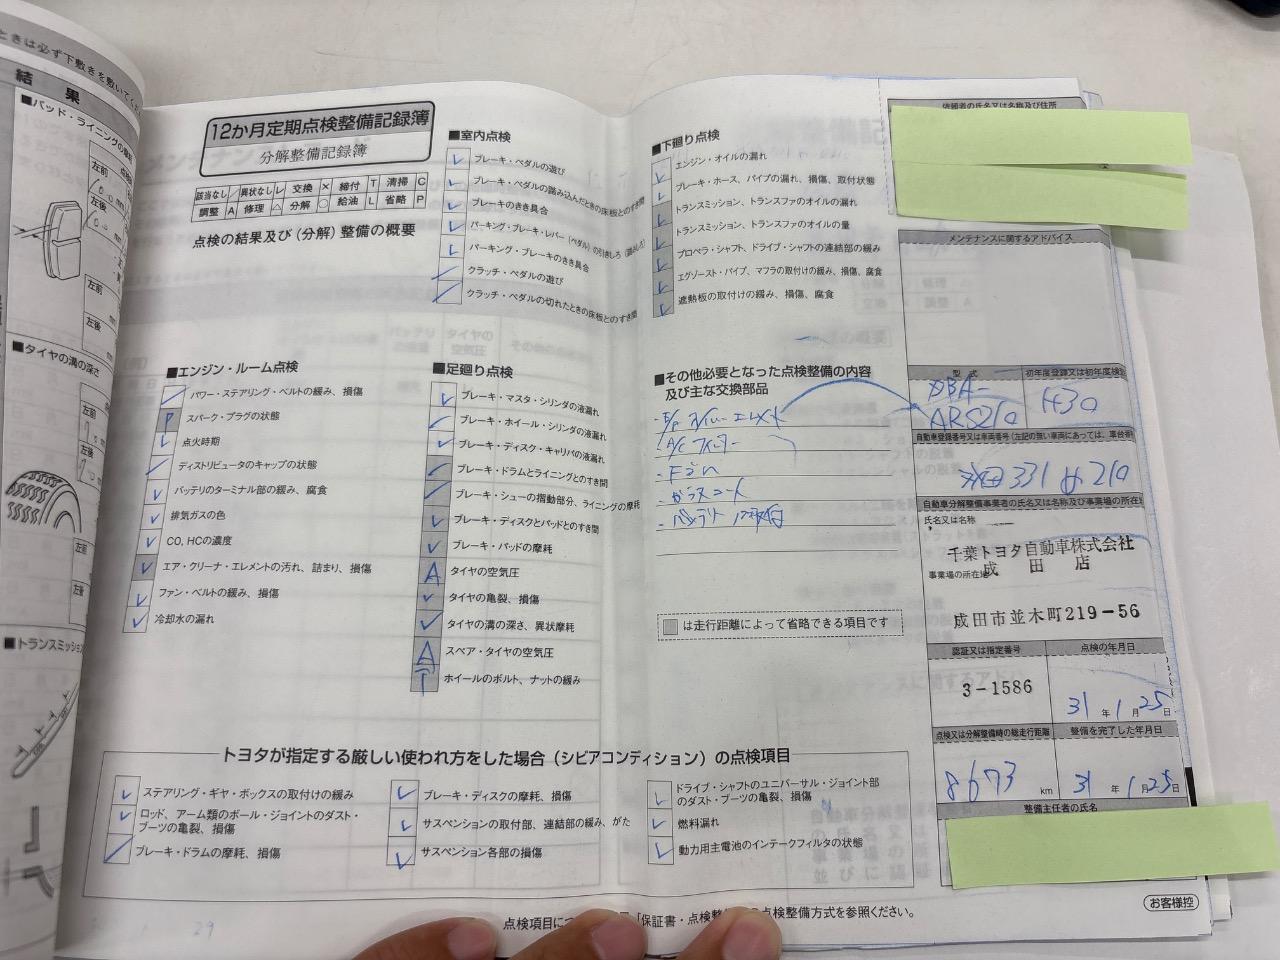 結果
■パッド・ライニングの摩耗
左前
左後
左前
左後
■タイヤの溝の深さ
左前
左後
左前
左後
■トランスミッション
12か月定期点検整備記録簿
分解整備記録簿
該当なし ／ 異状なし レ 交換 × 締付 T 清掃 C
調整 A 修理 △ 分解 ○ 給油 L 省略 P
点検の結果及び(分解)整備の概要
■エンジン・ルーム点検
パワー・ステアリング・ベルトの緩み、損傷
P スパーク・プラグの状態
点火時期
ディストリビュータのキャップの状態
バッテリのターミナル部の緩み、腐食
排気ガスの色
CO、HCの濃度
エア・クリーナ・エレメントの汚れ、詰まり、損傷
ファン・ベルトの緩み、損傷
冷却水の漏れ
■室内点検
ブレーキ・ペダルの遊び
ブレーキ・ペダルの踏み込んだときの床板とのすき間
ブレーキのきき具合
パーキング・ブレーキ・レバー(ペダル)の引きしろ(踏みしろ)
パーキング・ブレーキのきき具合
クラッチ・ペダルの遊び
クラッチ・ペダルの切れたときの床板とのすき間
■足廻り点検
ブレーキ・マスタ・シリンダの液漏れ
ブレーキ・ホイール・シリンダの液漏れ
ブレーキ・ディスク・キャリパの液漏れ
ブレーキ・ドラムとライニングとのすき間
ブレーキ・シューの摺動部分、ライニングの摩耗
ブレーキ・ディスクとパッドとのすき間
ブレーキ・パッドの摩耗
A タイヤの空気圧
タイヤの亀裂、損傷
タイヤの溝の深さ、異状摩耗
A スペア・タイヤの空気圧
T ホイールのボルト、ナットの緩み
■下廻り点検
エンジン・オイルの漏れ
ブレーキ・ホース、パイプの漏れ、損傷、取付状態
トランスミッション、トランスファのオイルの漏れ
トランスミッション、トランスファのオイルの量
プロペラ・シャフト、ドライブ・シャフトの連結部の緩み
エグゾースト・パイプ、マフラの取付けの緩み、損傷、腐食
遮熱板の取付けの緩み、損傷、腐食
■その他必要となった点検整備の内容
及び主な交換部品
は走行距離によって省略できる項目です
トヨタが指定する厳しい使われ方をした場合(シビアコンディション)の点検項目
ステアリング・ギヤ・ボックスの取付けの緩み
ロッド、アーム類のボール・ジョイントのダスト・
ブーツの亀裂、損傷
ブレーキ・ドラムの摩耗、損傷
ブレーキ・ディスクの摩耗、損傷
サスペンションの取付部、連結部の緩み、がた
サスペンション各部の損傷
ドライブ・シャフトのユニバーサル・ジョイント部
のダスト・ブーツの亀裂、損傷
燃料漏れ
動力用主電池のインテークフィルタの状態
点検項目に
「保証書・点検整
点検整備方式を参照ください。
依頼者の氏名又は名称及び住所
メンテナンスに関するアドバイス
型式 初年度登録又は初年度検
DBA-
ARS210 H30
自動車登録番号又は車両番号(左記の無い車両にあっては、車台番
成田 331 210
自動車分解整備事業者の氏名又は名称及び事業場の所在地
氏名又は名称
千葉トヨタ自動車株式会社
成田店
事業場の所在地
成田市並木町219-56
認証又は指定番号 点検の年月日
3-1586 31年1月25日
点検又は分解整備時の総走行距離 整備を完了した年月日
8673 km 31年1月25日
整備主任者の氏名
お客様控